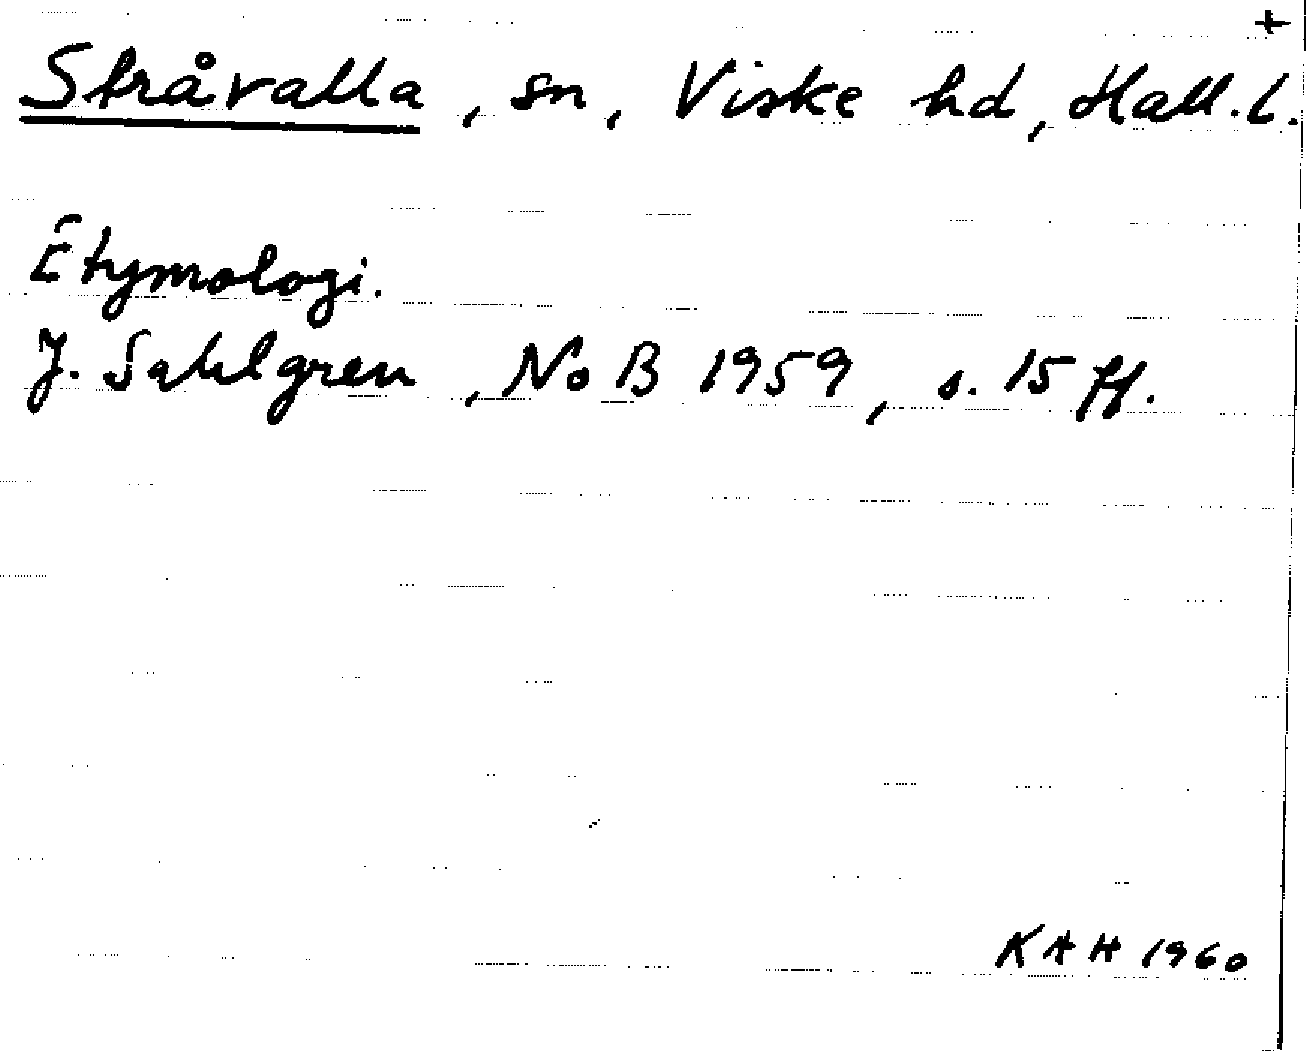 +
Stråvalla, sn, Viske hd, Hall. l.
Etymologi.
J. Sahlgren, NoB 1959, s. 15 ff.
KAH 1960